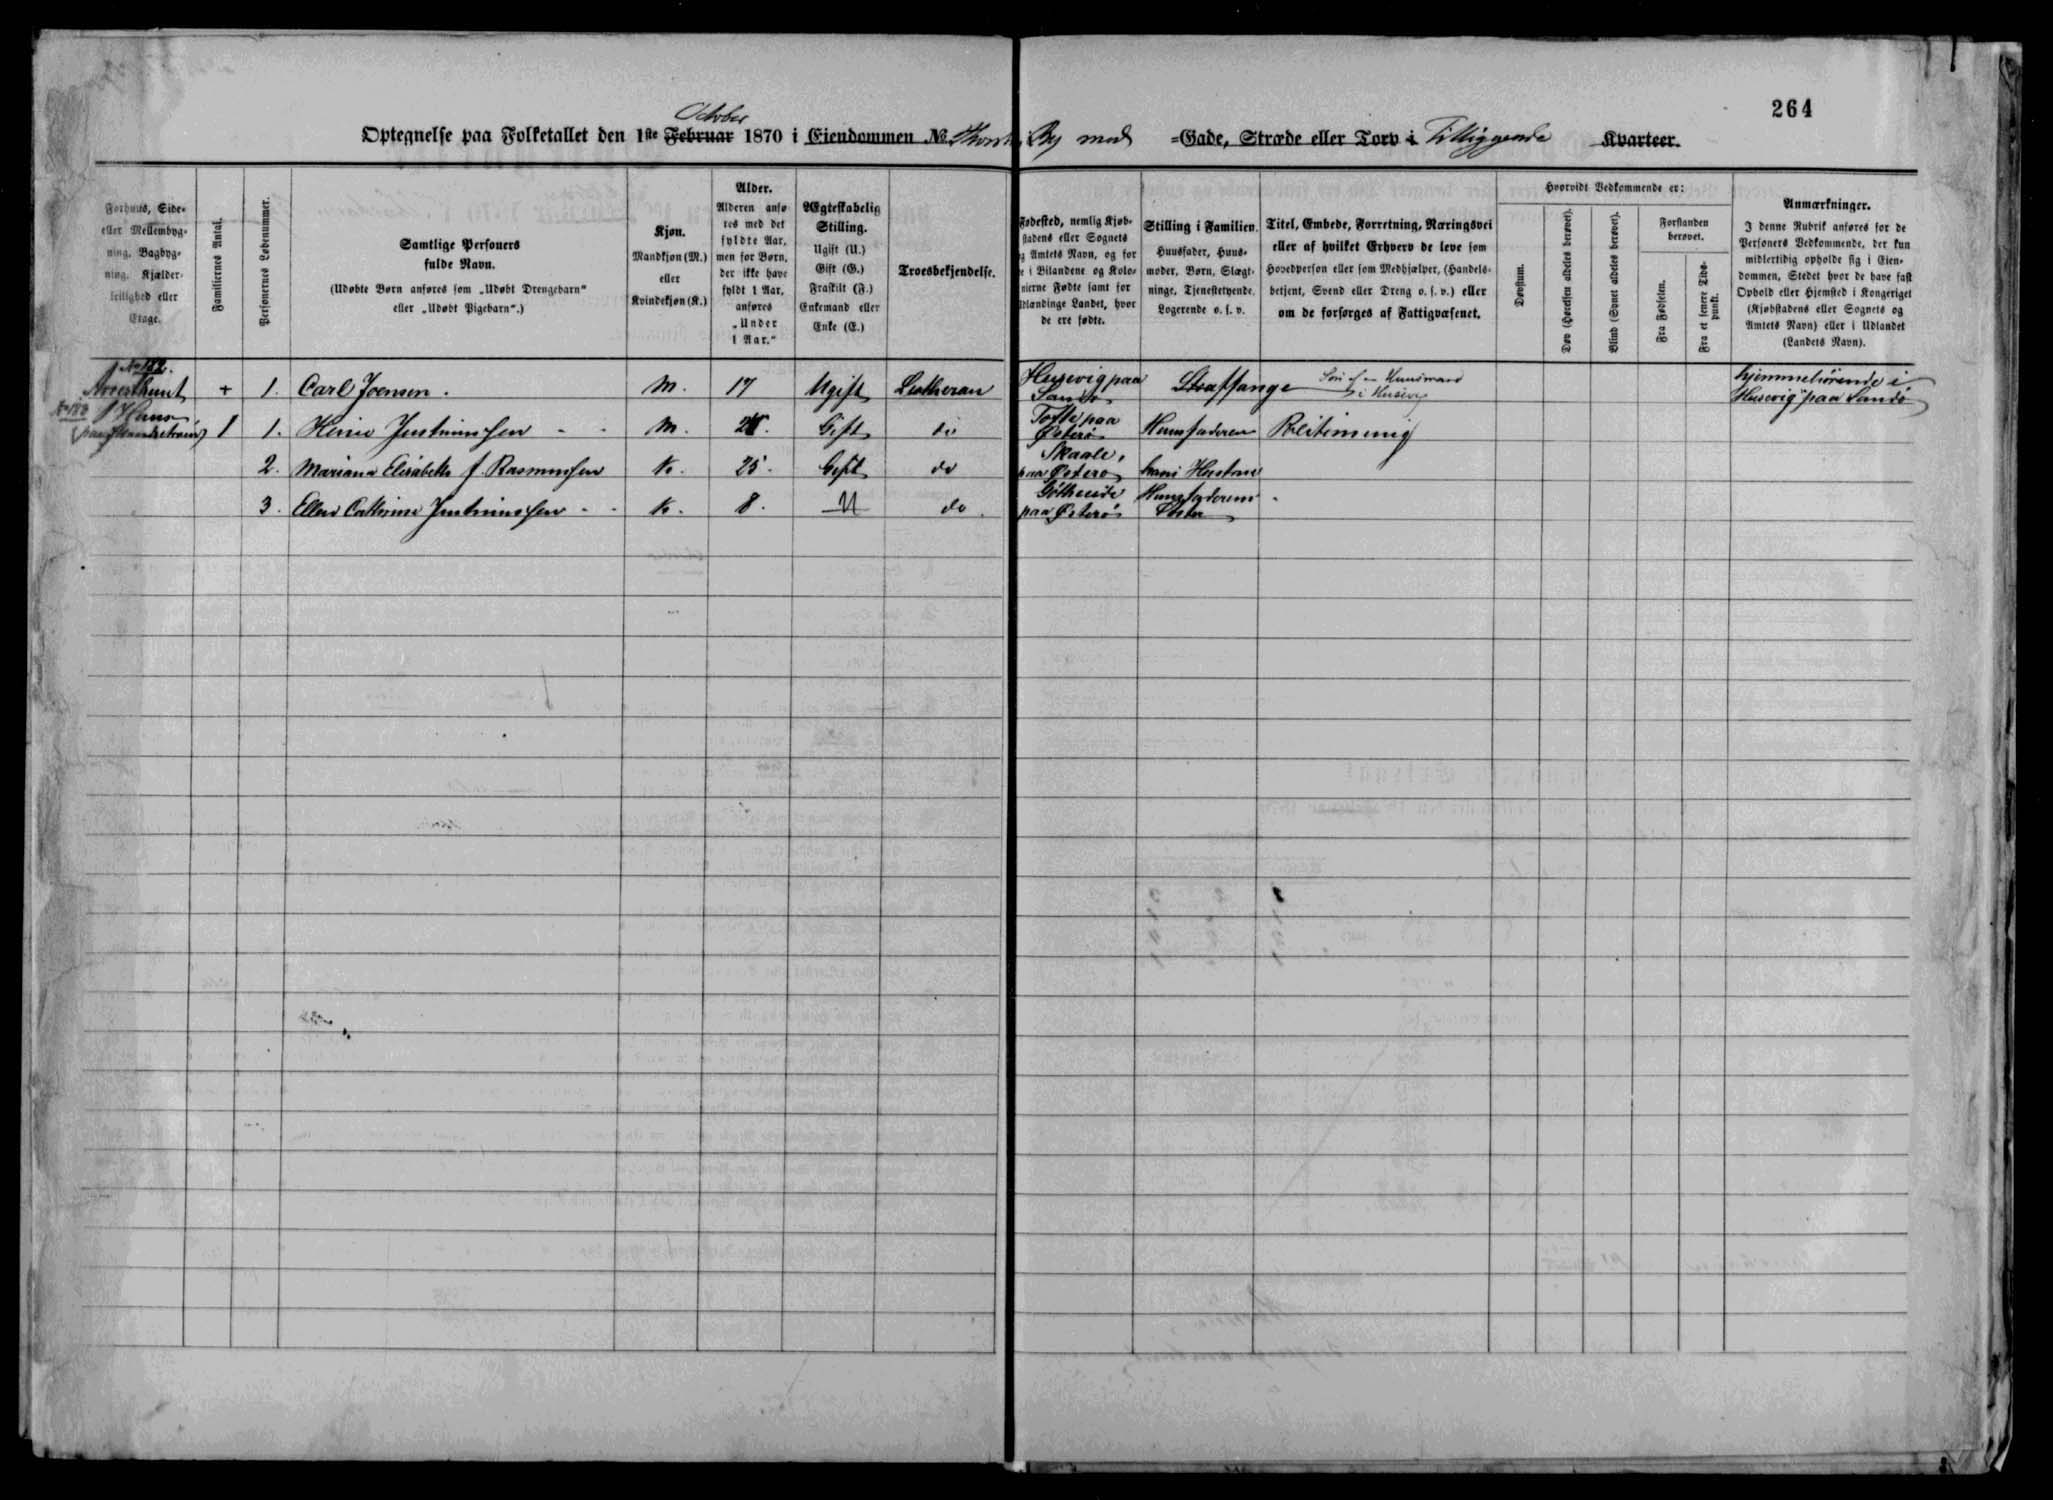 264
October
Optegnelse paa Folketallet den 1ste Februar 1870 i Eiendommen No Thorsh By med =Gade, Stræde eller Torv i Tilliggende Kvarteer.
Forhuus, Side= eller Mellembyg= ning, Bagbyg= ning, Kjælder= leilighed eller Etage.
Familiernes Antal.
Personernes Løbenummer.
Samtlige Personers fulde Navn.
(Udøbte Børn anføres som „Udøbt Drengebarn“ eller „Udøbt Pigebarn“.)
Kjøn.
Mandkjøn (M.) eller Kvindekjøn (K.)
Alder.
Alderen anfø- res med det fyldte Aar, men for Børn, der ikke have fyldt 1 Aar, anføres „Under 1 Aar.“
Ægteskabelig Stilling.
Ugift (U.) Gift (G.) Fraskilt (F.) Enkemand eller Enke (E.)
Troesbekjendelse.
Fødested, nemlig Kjøb- stadens eller Sognets og Amtets Navn, og for de i Bilandene og Kolo- nierne Fødte samt for Udlændinge Landet, hvor de ere fødte.
Stilling i Familien.
Huusfader, Huus- moder, Børn, Slægt- ninge, Tjenestetyende, Logerende o. s. v.
Titel, Embede, Forretning, Næringsvei eller af hvilket Erhverv de leve som Hovedperson eller som Medhjælper, (Handels- betjent, Svend eller Dreng o. s. v.) eller om de forsørges af Fattigvæsenet.
Hvorvidt Vedkommende er:
Døvstum.
Døv (Hørelsen aldeles berøvet).
Blind (Synet aldeles berøvet).
Forstanden berøvet.
Fra Fødselen.
Fra et senere Tids- punkt.
Anmærkninger.
I denne Rubrik anføres for de Personers Vedkommende, der kun midlertidig opholde sig i Eien- dommen, Stedet hvor de have fast Ophold eller Hjemsted i Kongeriget (Kjøbstadens eller Sognets og Amtets Navn) eller i Udlandet (Landets Navn).
No 182.
Arresthuset + 1. Carl Joensen. M. 17 Ugift Lutheran Husevig paa Sandø Straffange Søn af en Huusmand i Husevig hjemmehørende i Husevig paa Sandø
1 1. Heine Justinussen M. Gift do Tofte paa Østerø Huusfaderen
2. Mariana Elisabeth f. Rasmussen K. 25. Gift do Skaale, paa Østerø hans Hustrue
3. Ellen Cathrine Justinussen K. 8. U do paa Østerø Huusfaderens Søster